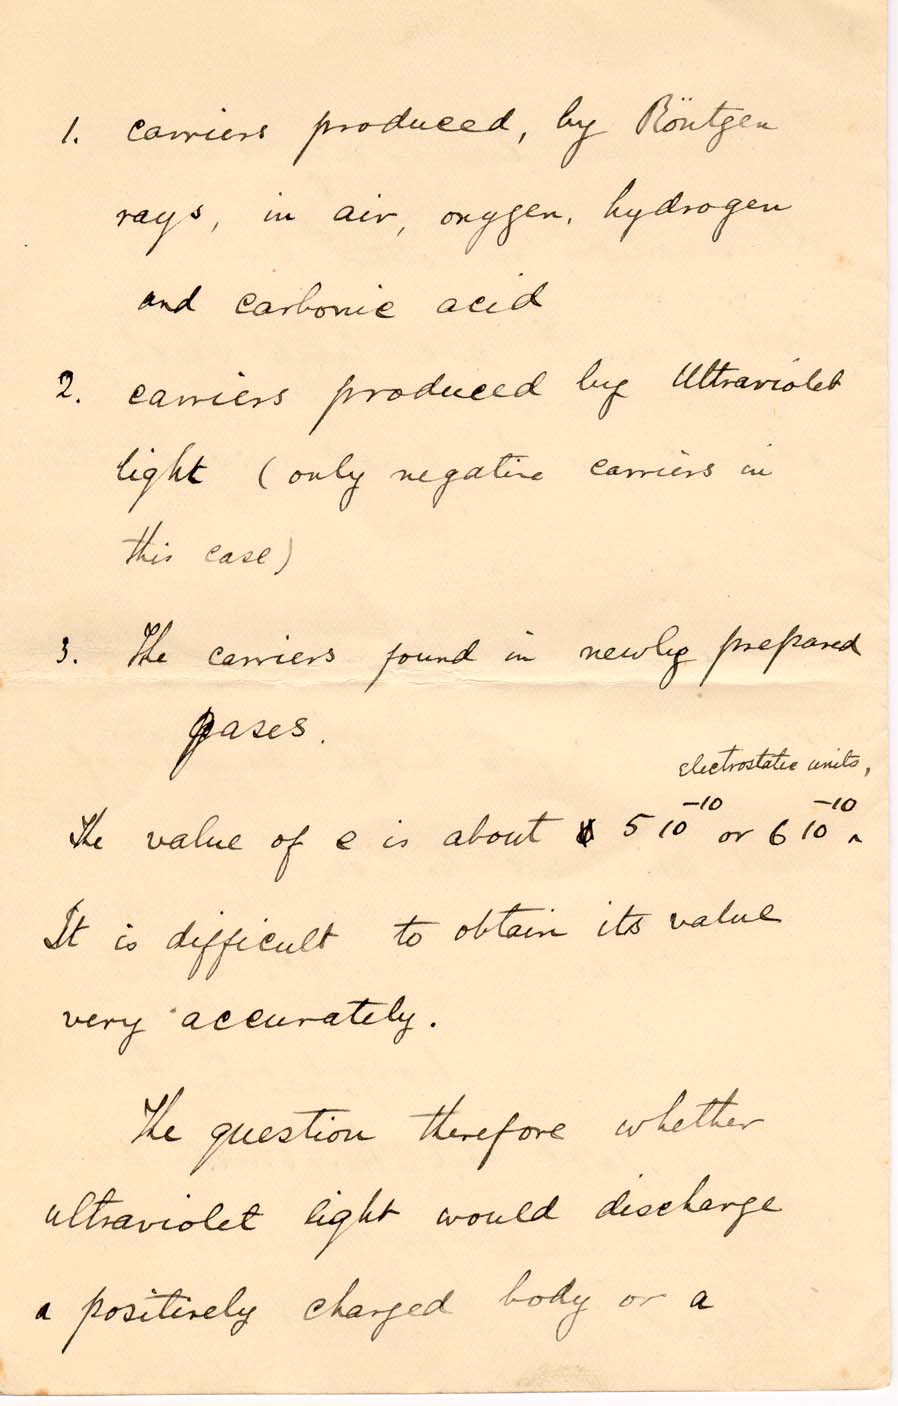 1. carriers produced, by Röntgen
rays, in air, oxygen, hydrogen
and carbonic acid
2. carriers produced by Ultraviolet
light (only negative carriers in
this case)
3. The carriers found in newly prepared
gases.
electrostatic units,
The value of e is about 5 10⁻¹⁰ or 6 10⁻¹⁰
It is difficult to obtain its value
very accurately.
The question therefore whether
ultraviolet light would discharge
a positively charged body or a